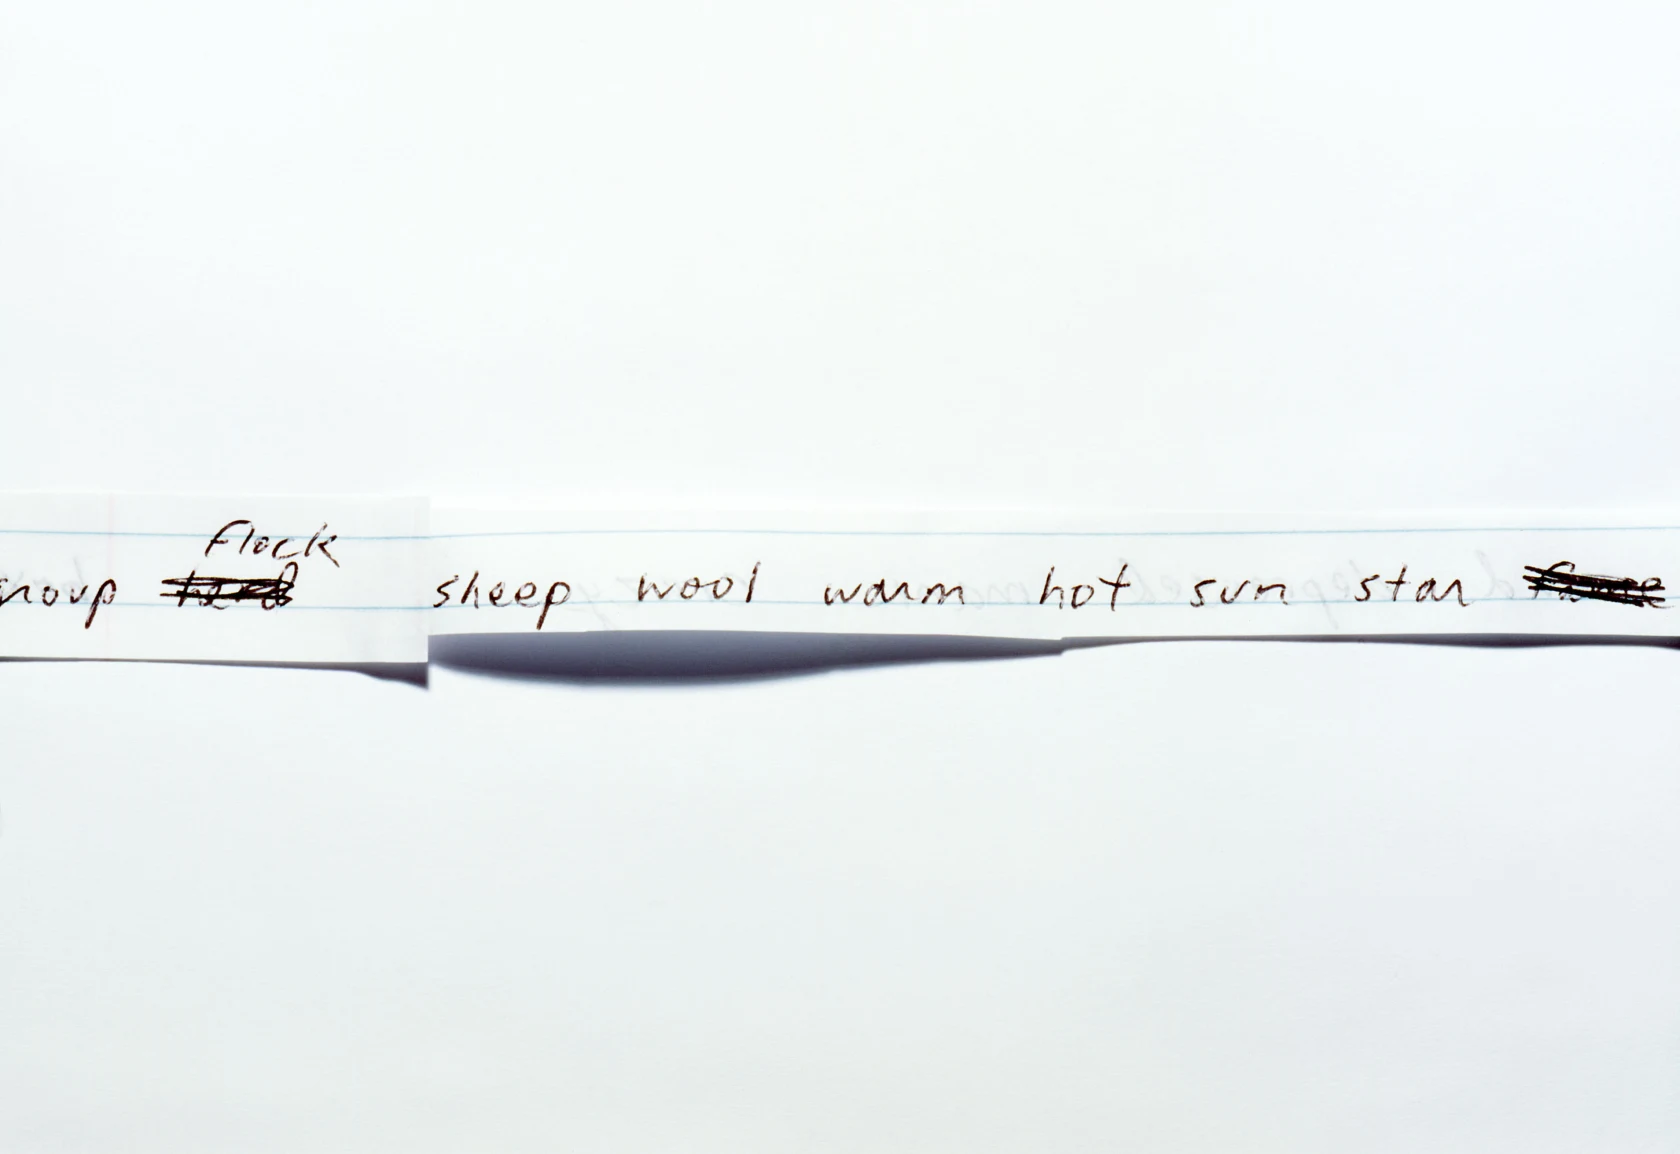 roup flock sheep wool warm hot sun star